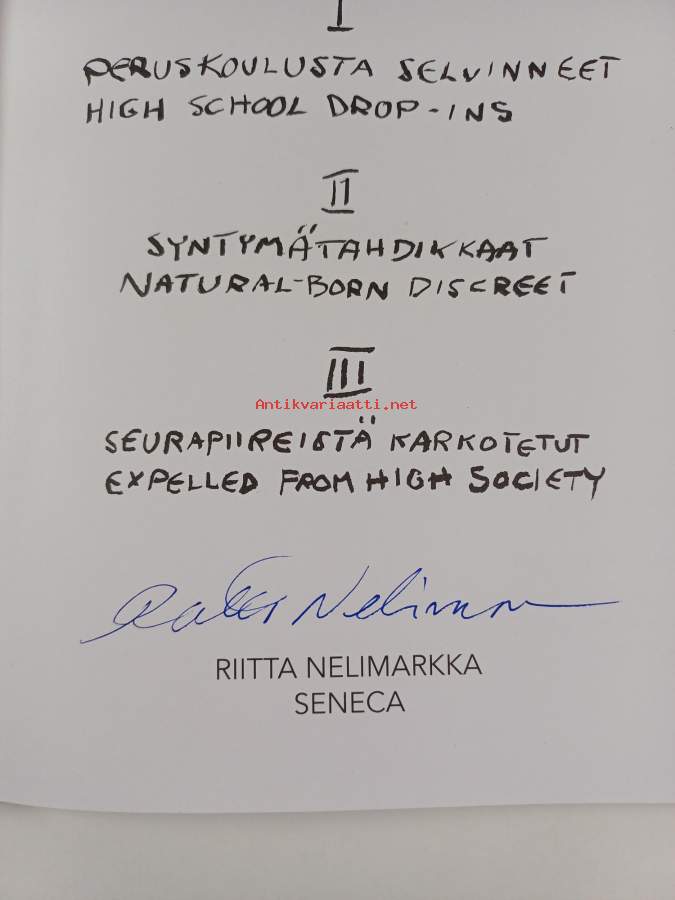 I
PERUSKOULUSTA SELVINNEET
HIGH SCHOOL DROP-INS
II
SYNTYMÄTAHDIKKAAT
NATURAL-BORN DISCREET
III
Antikvariaatti.net
SEURAPIIREISTÄ KARKOTETUT
EXPELLED FROM HIGH SOCIETY
RIITTA NELIMARKKA
SENECA